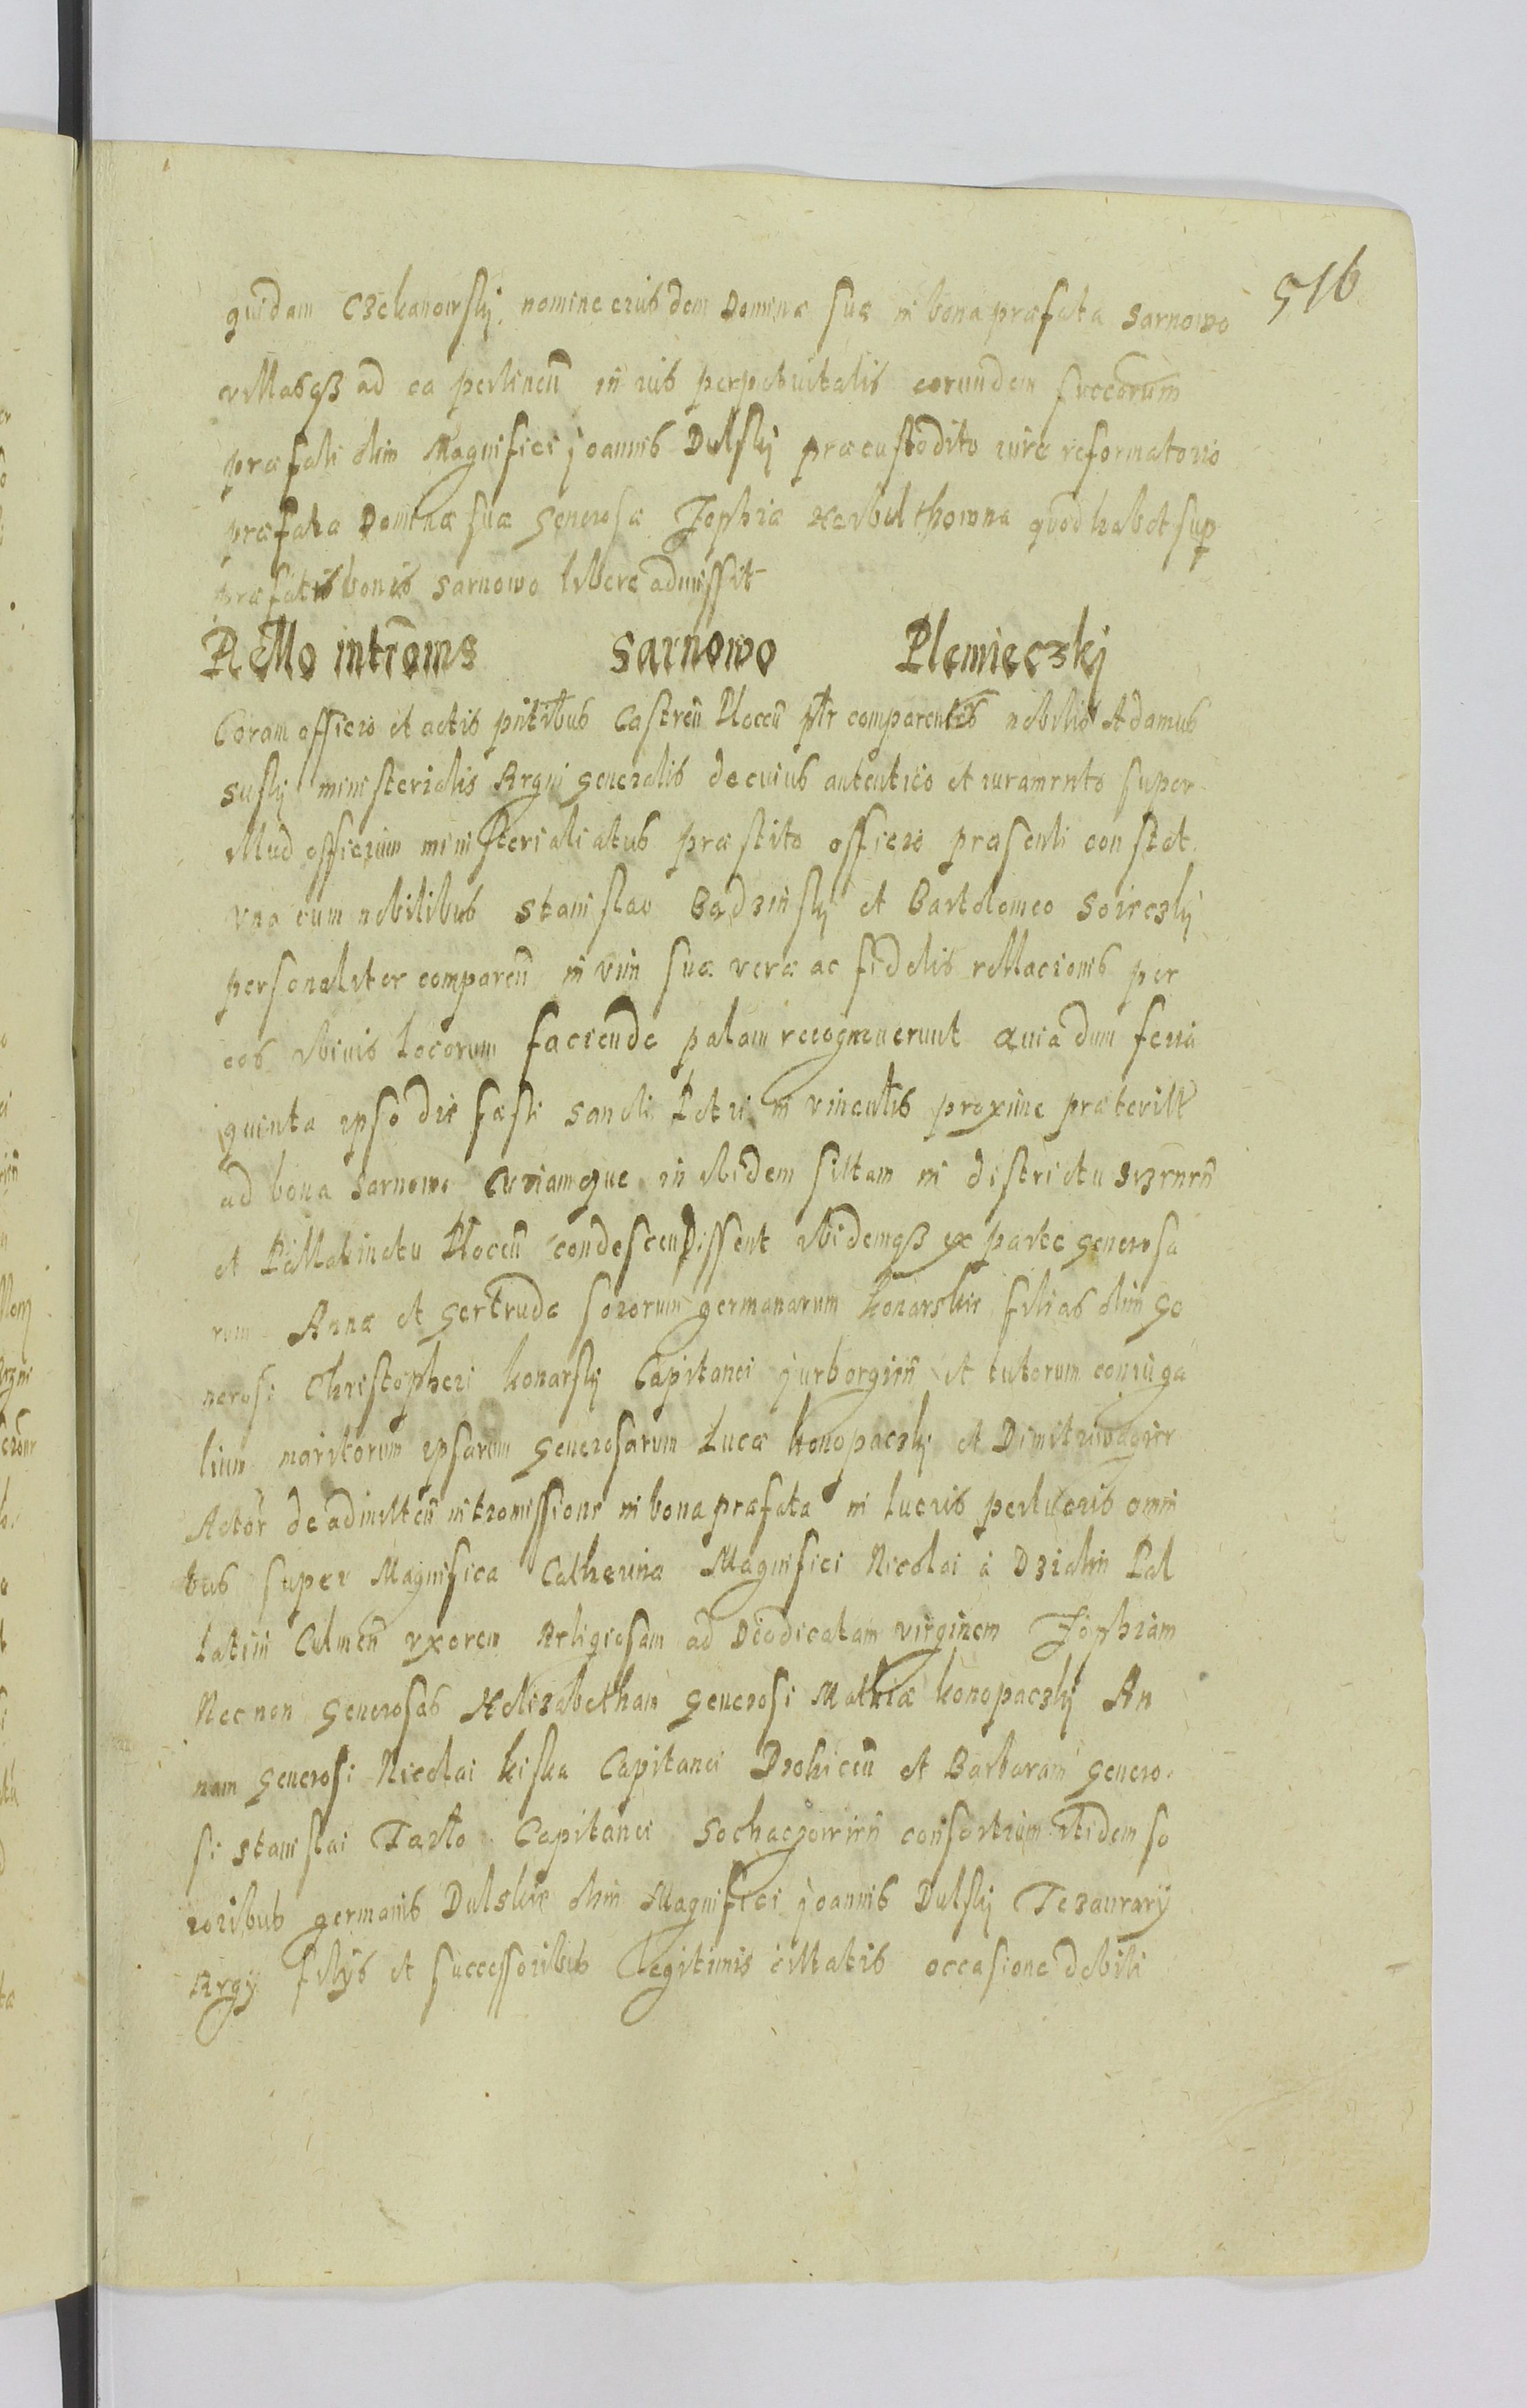 516
quidam Czekanowskj nomine eiusdem Dominæ suæ in bona præfata Sarnowo
villasqȝ ad ea pertineñ in ius perpetuitatis eorundem succorum
præfati olim Magnifici Joannis Dulskj præcustodito iure reformatorio
præfatæ Dominæ suæ Generosæ Zophiæ Herbulthowna quod habet sup
præfatis bonis Sarnowo libere admissit
Rello introms Sarnowo Plemieczkj
Coram officio et actis pntibus Castreñ Ploceñ pltr comparentes nobilis Adamus
Suskj ministerialis Regni generalis de cuius autentico et iuramento super
illud officium ministerialiatus præstito officio præsenti constat
vna cum nobilibus Stanislao Badzinskj et Bartolomeo
personaliter compareñ in vim suæ veræ ac fidelis rellacionis per
eos vbiuis locorum faciendæ palam recognouerunt Quia dum feria
quinta ipso die fæsti Sancti Petri in vinculis proxime præteritt
ad bona Sarnowo Curiamque in ibidem sittam in districtu Srzeneñ
et Pallatinatu Ploceñ condescendissent ibidemqȝ ex parte Generosa
rum Annæ et Gertrudæ sororum germanarum Konarskie filias olim Ge
nerosi Christopheri Konarskj Capitanei Jurborgieñ et tutorum coniuga
lium maritorum ipsarum Generosarum Lucæ Konopaczkj et Dimitri
Actor de admitteñ intromissione in bona præfata in lucris perlucris omni
bus super Magnifica Catherina Magnifici Nicolai à Dzialin Pal
latini Culmeñ vxorem Religiosam ad Deodicatam virginem Zophiam
Nec non Generosas Helizabetham Generosi Mathiæ Konopaczkj An
nam Generosi Nicolai Kiska Capitanei Drohiceñ et Barbaram Genero
si Stanislai Tarlo Capitanei Sochaczowieñ consortium itidem so
roribus germanis Dulskie olim Magnifici Joannis Dulskj Tezaurary
Regy filys et successoribus legitimis cittatis occasione debiti